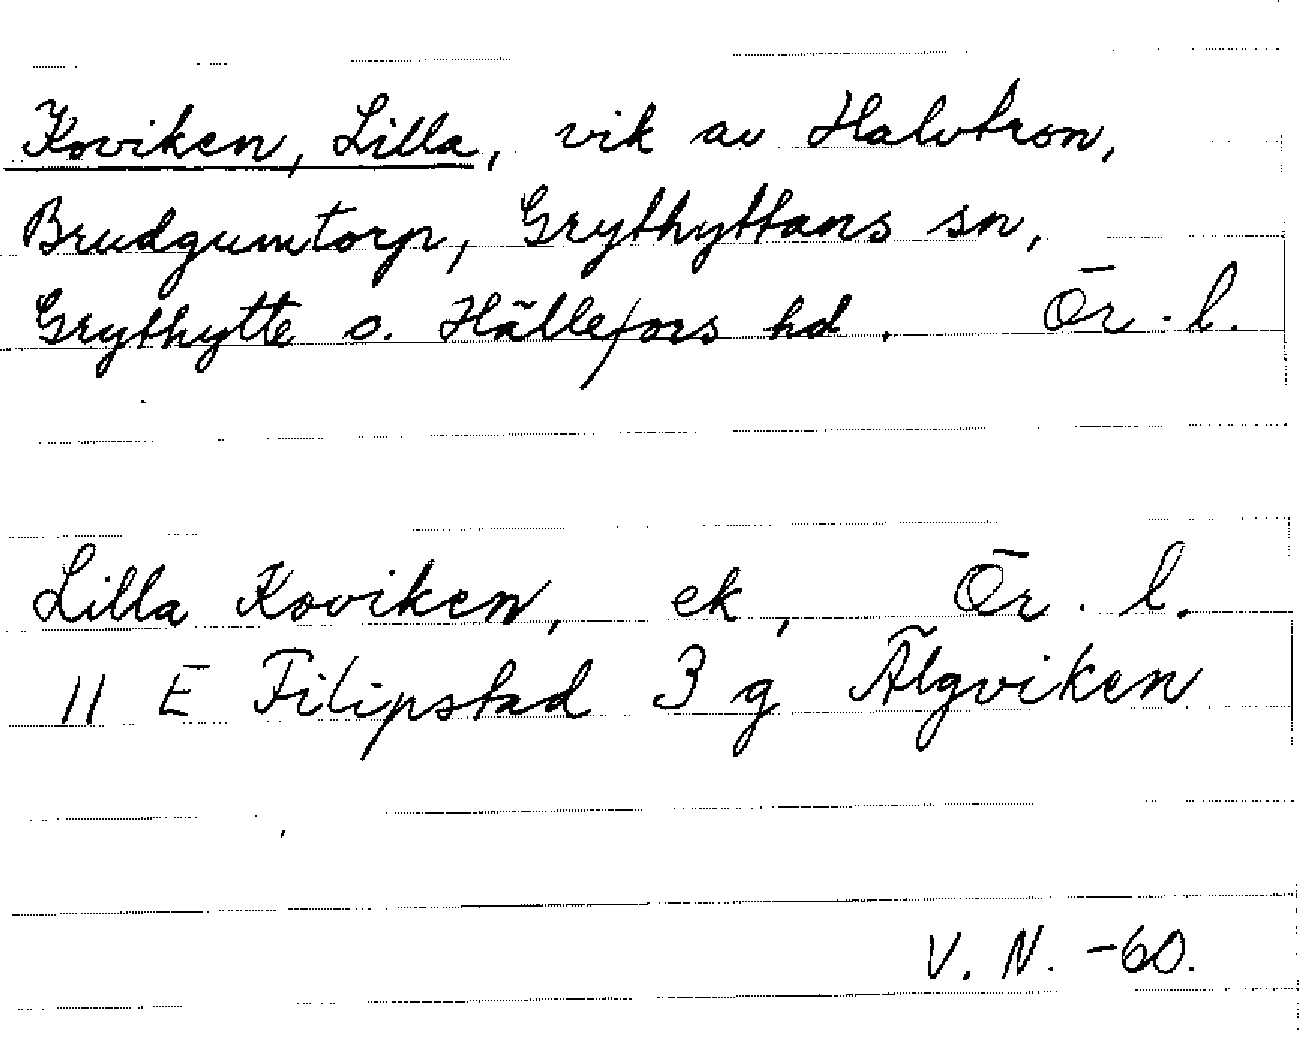 Koviken, Lilla, vik av Halvtron,
Brudgumtorp, Grythyttans sn,
Grythytte o. Hällefors hd. Ör. l.
Lilla Koviken, ek, Ör. l.
11 E Filipstad 3 g Älgviken
V. N. -60.